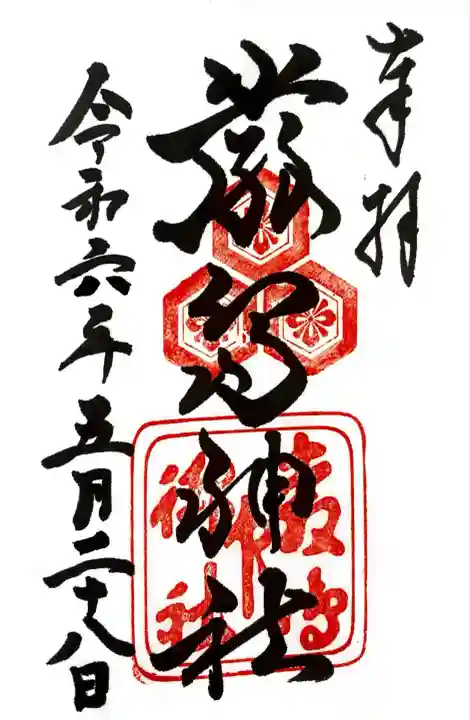 奉拝
厳島神社
令和六年五月二十八日